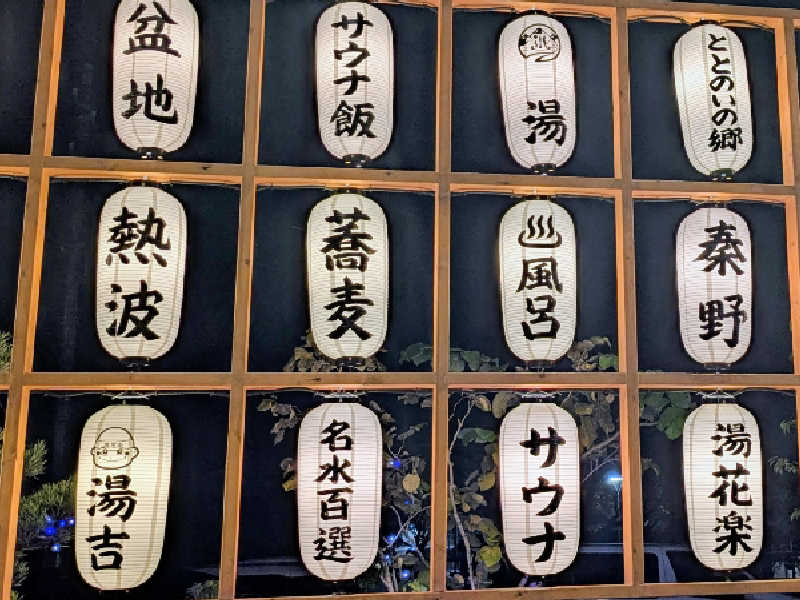 盆地
サウナ飯
湯
ととのいの郷
熱波
蕎麦
♨風呂
秦野
湯吉
名水百選
サウナ
湯花楽